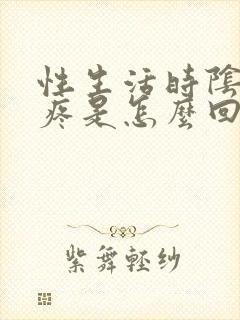 性生活時陰
疼是怎麼回
紫舞輕紗